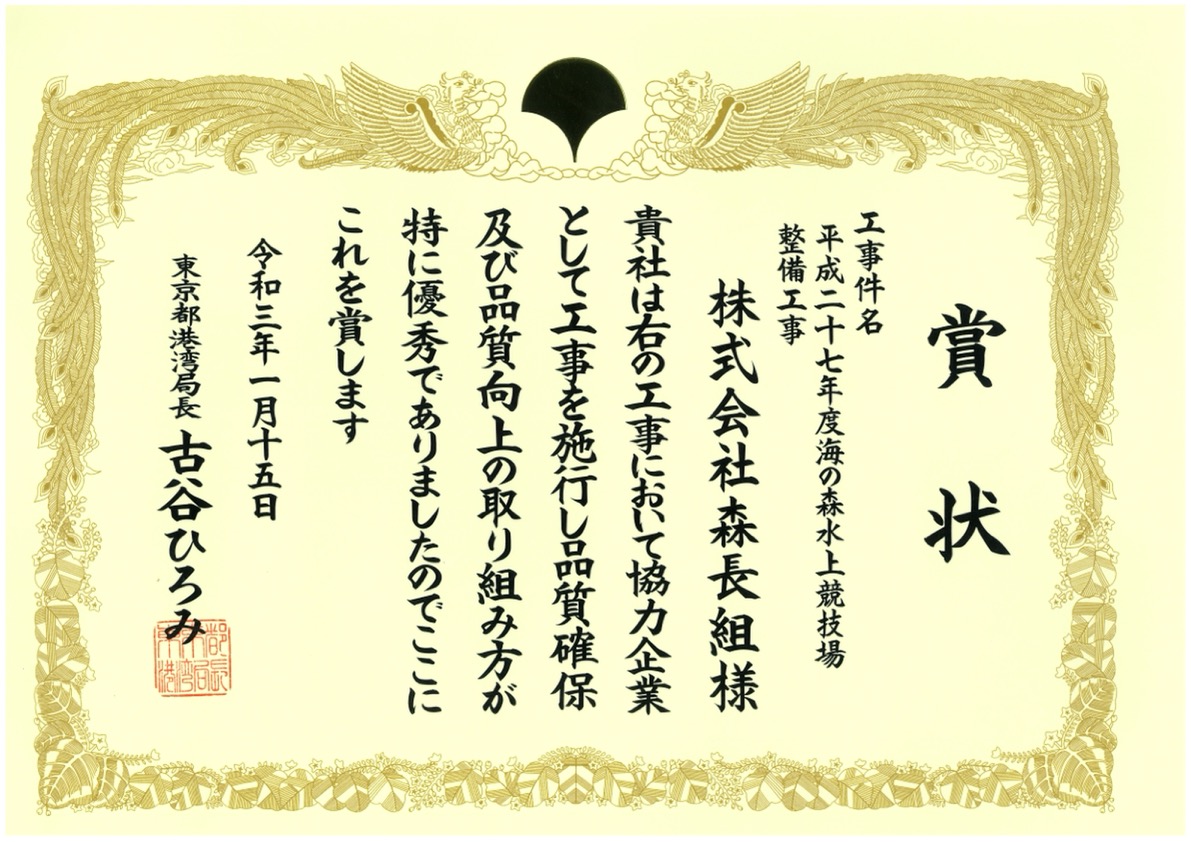 賞状
工事件名
平成二十七年度海の森水上競技場
整備工事
株式会社森長組様
貴社は右の工事において協力企業
として工事を施行し品質確保
及び品質向上の取り組み方が
特に優秀でありましたのでここに
これを賞します
令和三年一月十五日
東京都港湾局長 古谷ひろみ
東京都港湾局長